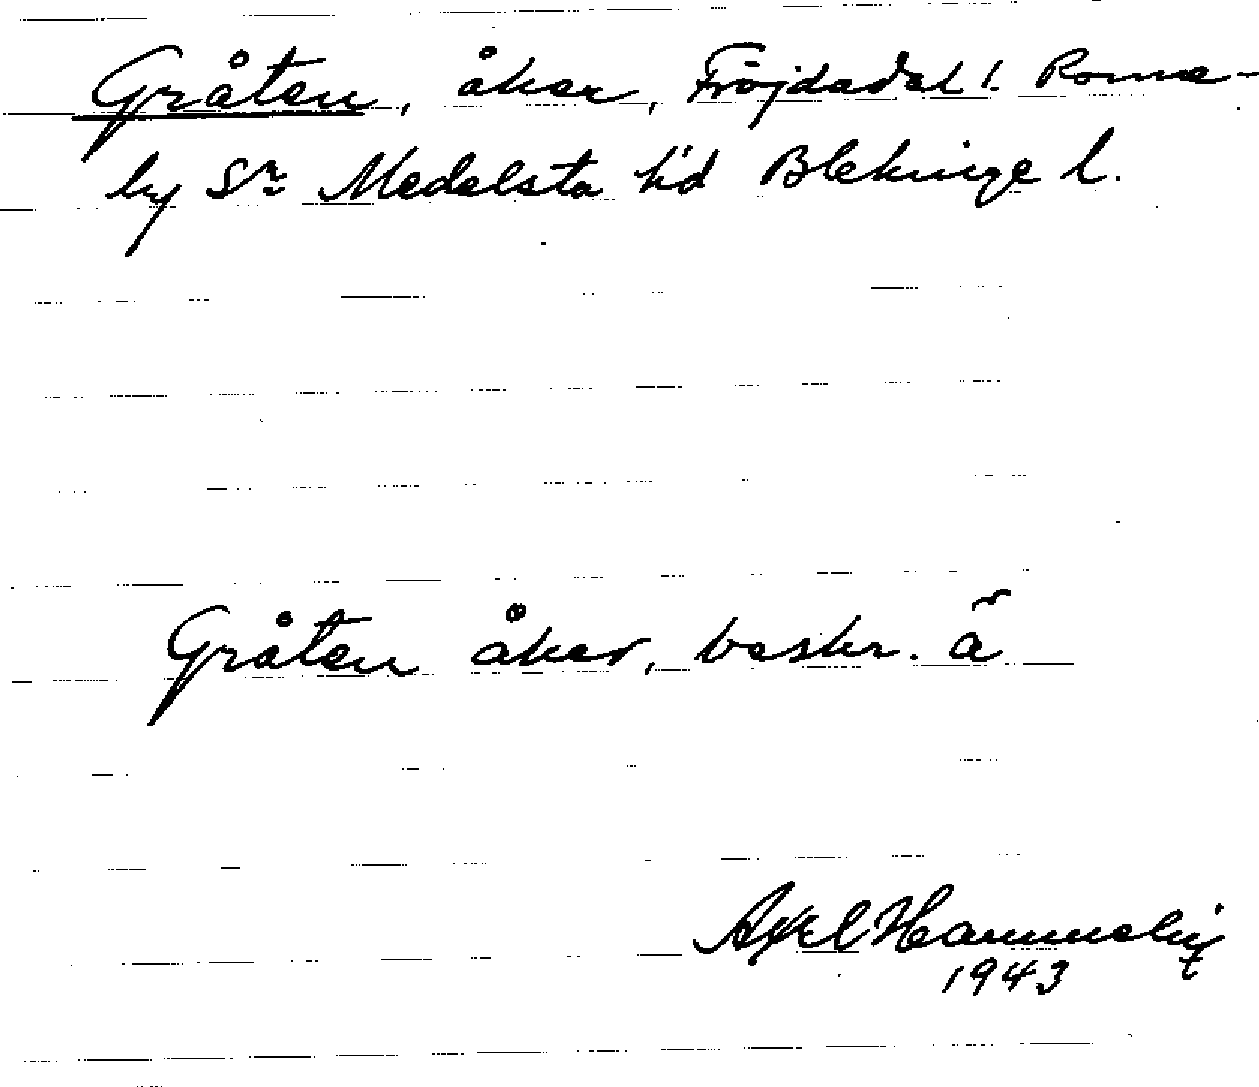 Gråten, åker, Fröjdadal 1. Ronne-
by Sn Medelsta hd Blekinge l.
Gråten åker, beskr. ã
Axel
1943